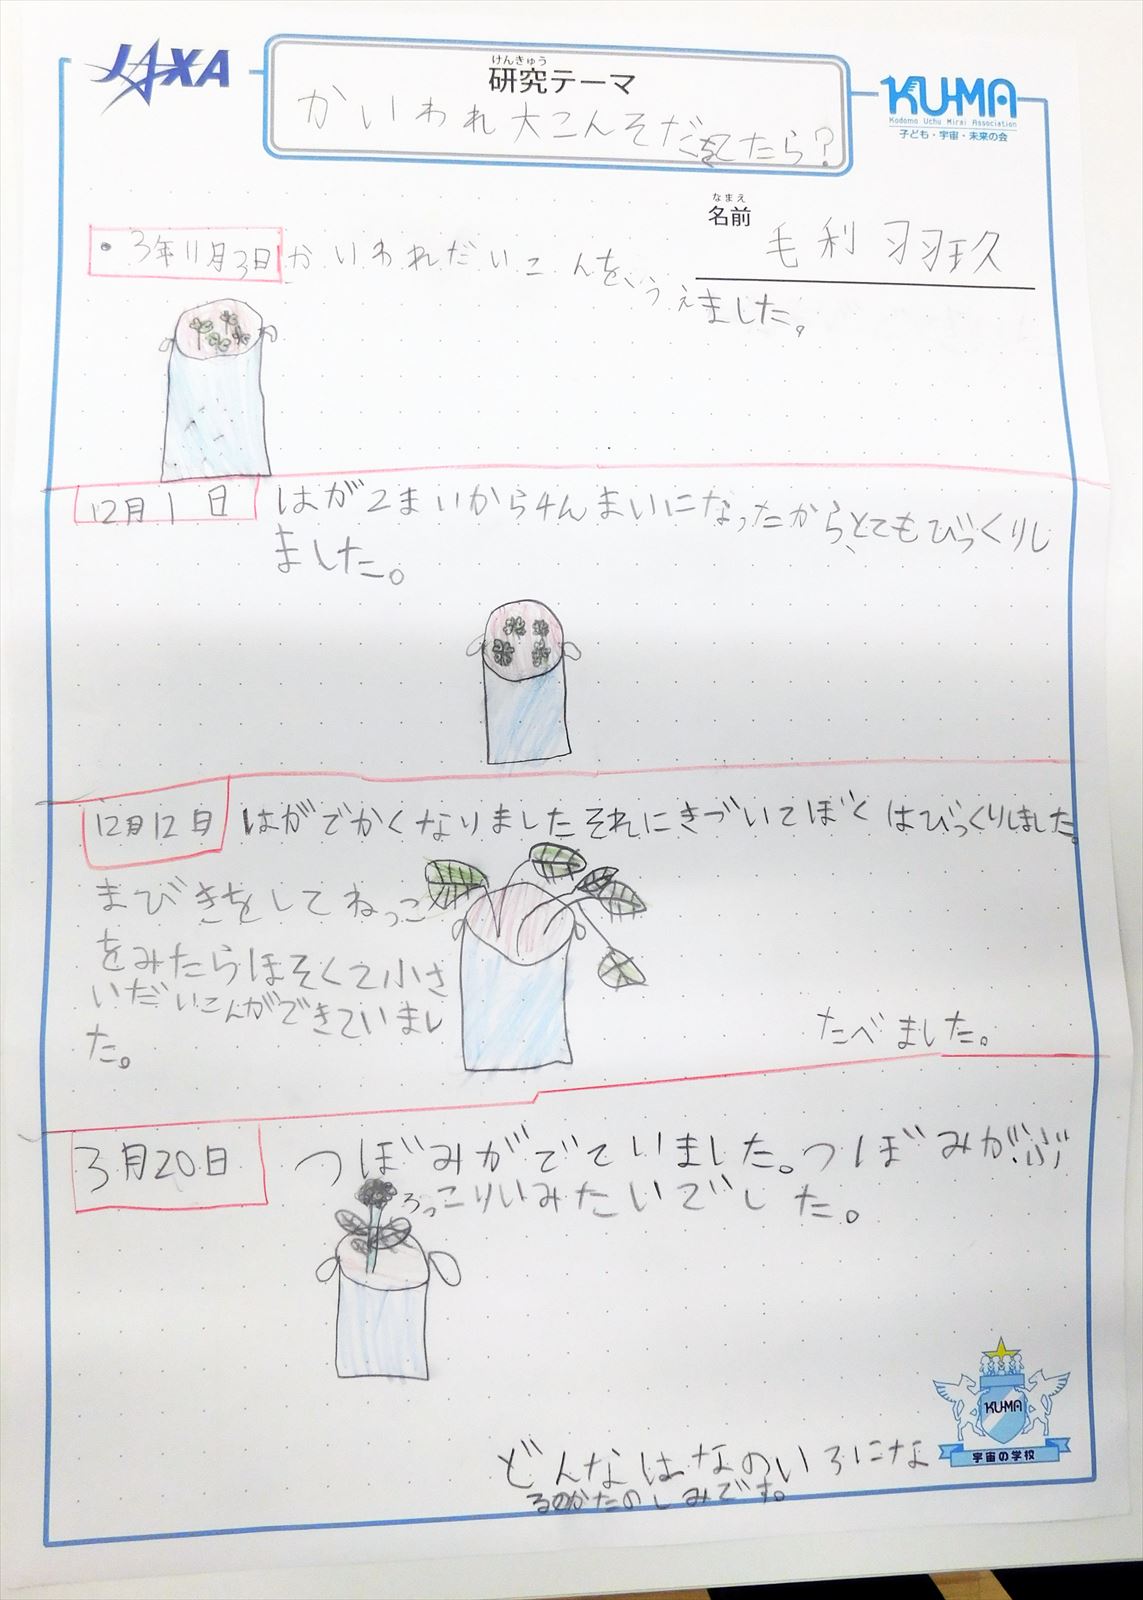 JAXA
けんきゅう
研究テーマ
かいわれ大こんそだてたら？
KU-MA
Kodomo Uchu Mirai Association
子ども・宇宙・未来の会
なまえ
名前
毛利
・3年11月3日 かいわれだいこんを、うえ
ました。
12月1日 はが2まいから4んまいになったから、とてもびっくりし
ました。
12月12日 はがでかくなりましたそれにきづいてぼくはびっくりしました。
まびきをしてねっこ
をみたらほそくて小さ
いだいこんができていまし
た。
たべました。
3月20日 つぼみがでていました。つぼみがぶ
ろっこりいみたいでした。
どんなはなのいろにな
るのかたのしみです。
KU-MA
宇宙の学校